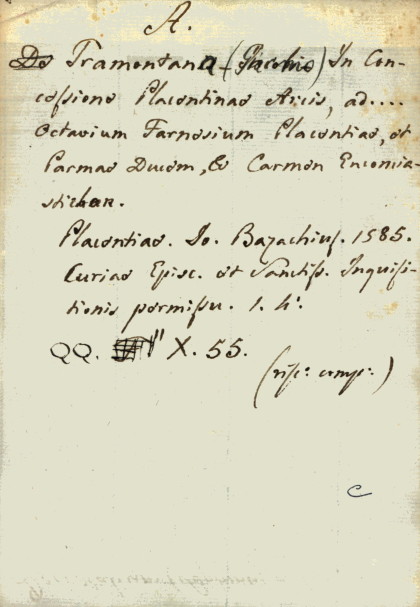 A.
De Tramontana (Jacobio) In Con-
cessione Placentinae Arcis, ad....
Octavium Farnesium Placentiae, et
Parmae Ducem, & Carmen Encomia-
sticon.
Placentiae. Jo. Bazachius. 1585.
Curiae Episc. et Sanctiss. Inquisi-
tionis permissu. 1. 4°.
QQ. X. 55.
(risc: comp:)
C